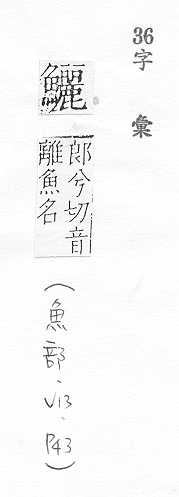 36字彙
鱺
郎兮切音
離魚名
(魚部、V13、P43)